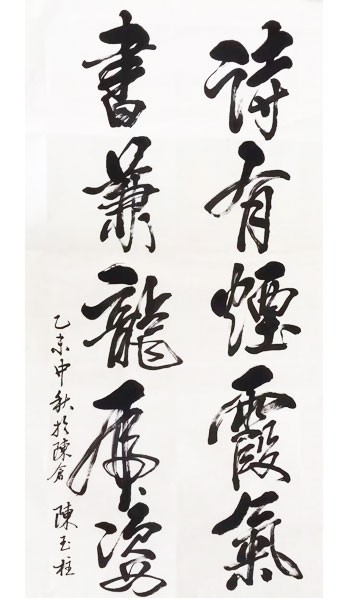 詩有煙霞氣
書兼龍虎姿
乙未中秋於陳倉 陳玉柱